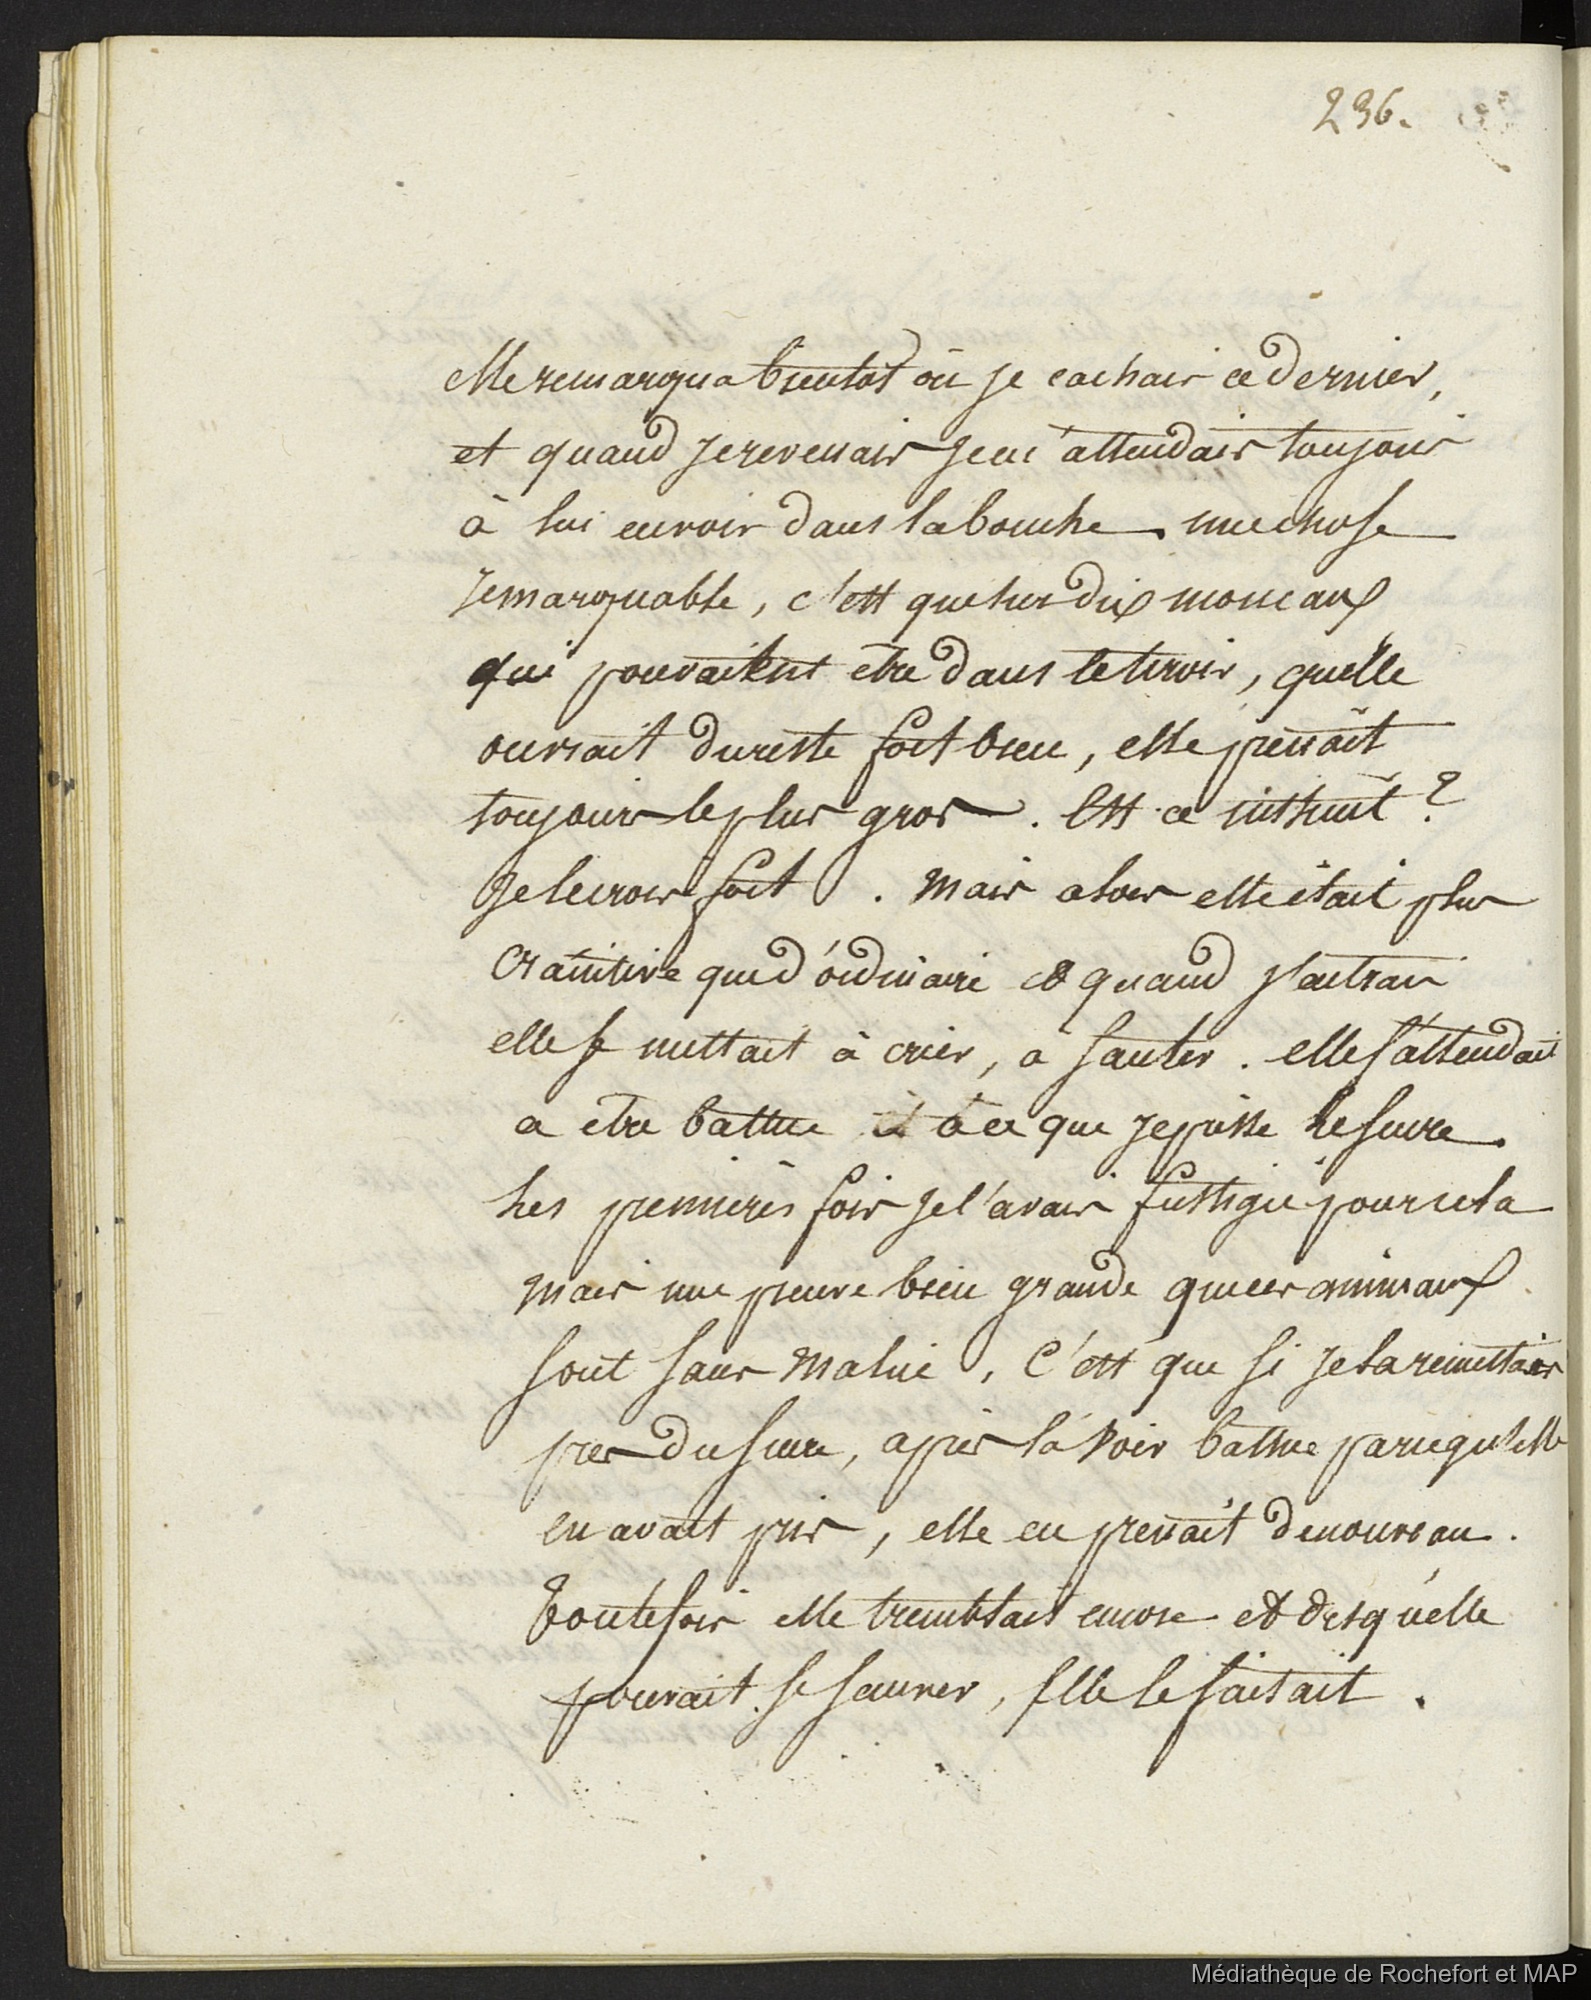 236.
elle remarqua bientôt où je cachais ce dernier,
et quand je revenais je m'attendais toujours
à lui en voir dans la bouche. une chose
remarquable, c'est que sur dix morceaux
qui pouvaient être dans le tiroir, qu'elle
ouvrait du reste fort bien, elle prenait
toujours le plus gros. Est-ce instinct?
Je le crois fort. Mais alors elle était plus
craintive que d'ordinaire et quand j'entrais
elle se mettait à crier, a sauter. elle s'attendait
a être battue et à ce que je prisse le sucre.
les premières fois je l'avais fustigée pour cela
mais une preuve bien grande que ces animaux
sont sans malice, C'est que si je la remettais
près du sucre, après l'avoir battue parcequ'elle
en avait pris, elle en prenait de nouveau.
Toutefois elle tremblait encore et dès qu'elle
pouvait se sauver, elle le faisait.
Médiathèque de Rochefort et MAP